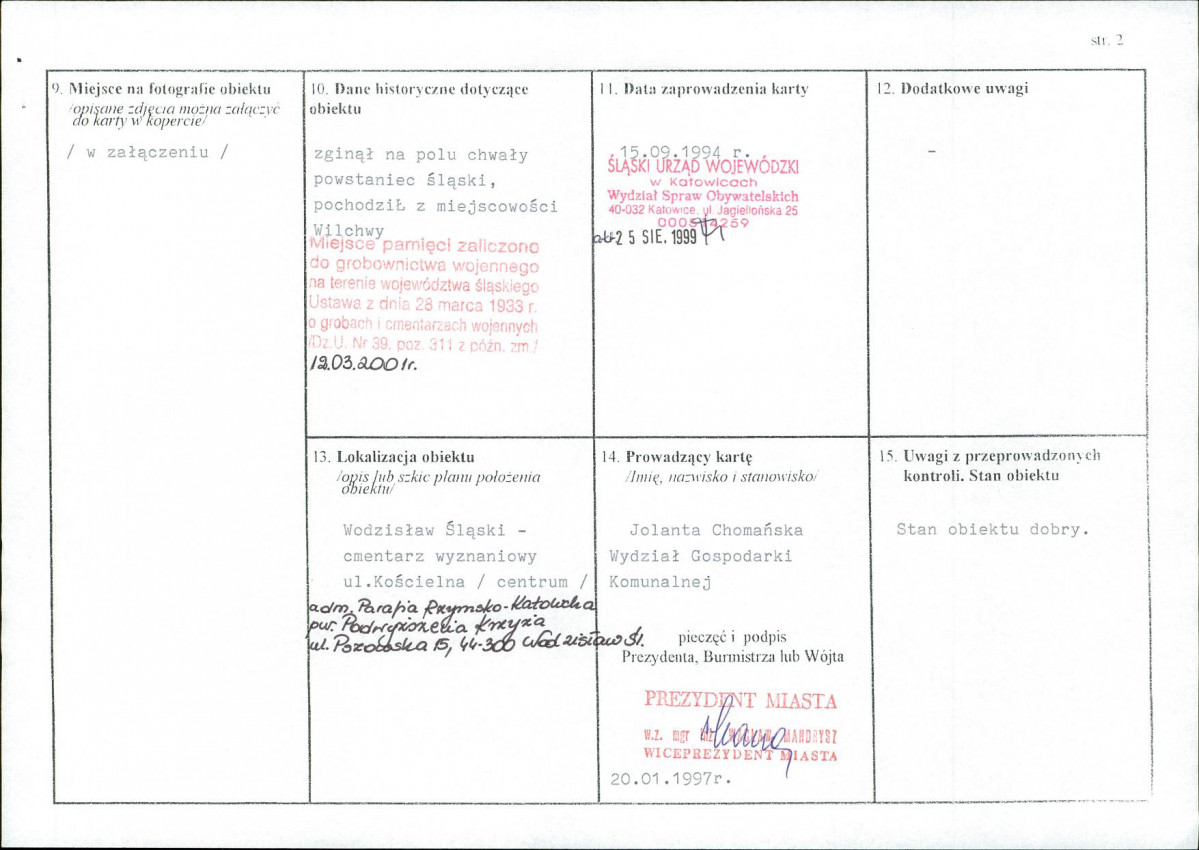 str. 2
9. Miejsce na fotografie obiektu
/opisane zdjęcia można załączyć
do karty w kopercie/
/ w załączeniu /
10. Dane historyczne dotyczące
obiektu
zginął na polu chwały
powstaniec śląski,
pochodziŁ z miejscowości
Wilchwy
Miejsce pamięci zaliczono
do grobownictwa wojennego
na terenie województwa śląskiego
Ustawa z dnia 28 marca 1933 r.
o grobach i cmentarzach wojennych
/Dz.U. Nr 39, poz. 311 z późn. zm./
12.03.2001r.
11. Data zaprowadzenia karty
15.09.1994 r.
ŚLĄSKI URZĄD WOJEWÓDZKI
w Katowicach
Wydział Spraw Obywatelskich
40-032 Katowice, ul. Jagiellońska 25
2 5 SIE. 1999
12. Dodatkowe uwagi
-
13. Lokalizacja obiektu
/opis lub szkic planu położenia
obiektu/
Wodzisław Śląski -
cmentarz wyznaniowy
ul.Kościelna / centrum /
adm. Parafia Rzymsko-Katolicka
pw. Podwyższenia Krzyża
ul. 15, 44-300 Wodzisław Śl.
14. Prowadzący kartę
/Imię, nazwisko i stanowisko/
Jolanta Chomańska
Wydział Gospodarki
Komunalnej
pieczęć i podpis
Prezydenta, Burmistrza lub Wójta
PREZYDENT MIASTA
w.z. mgr inż. MANDRYSZ
WICEPREZYDENT MIASTA
20.01.1997r.
15. Uwagi z przeprowadzonych
kontroli. Stan obiektu
Stan obiektu dobry.